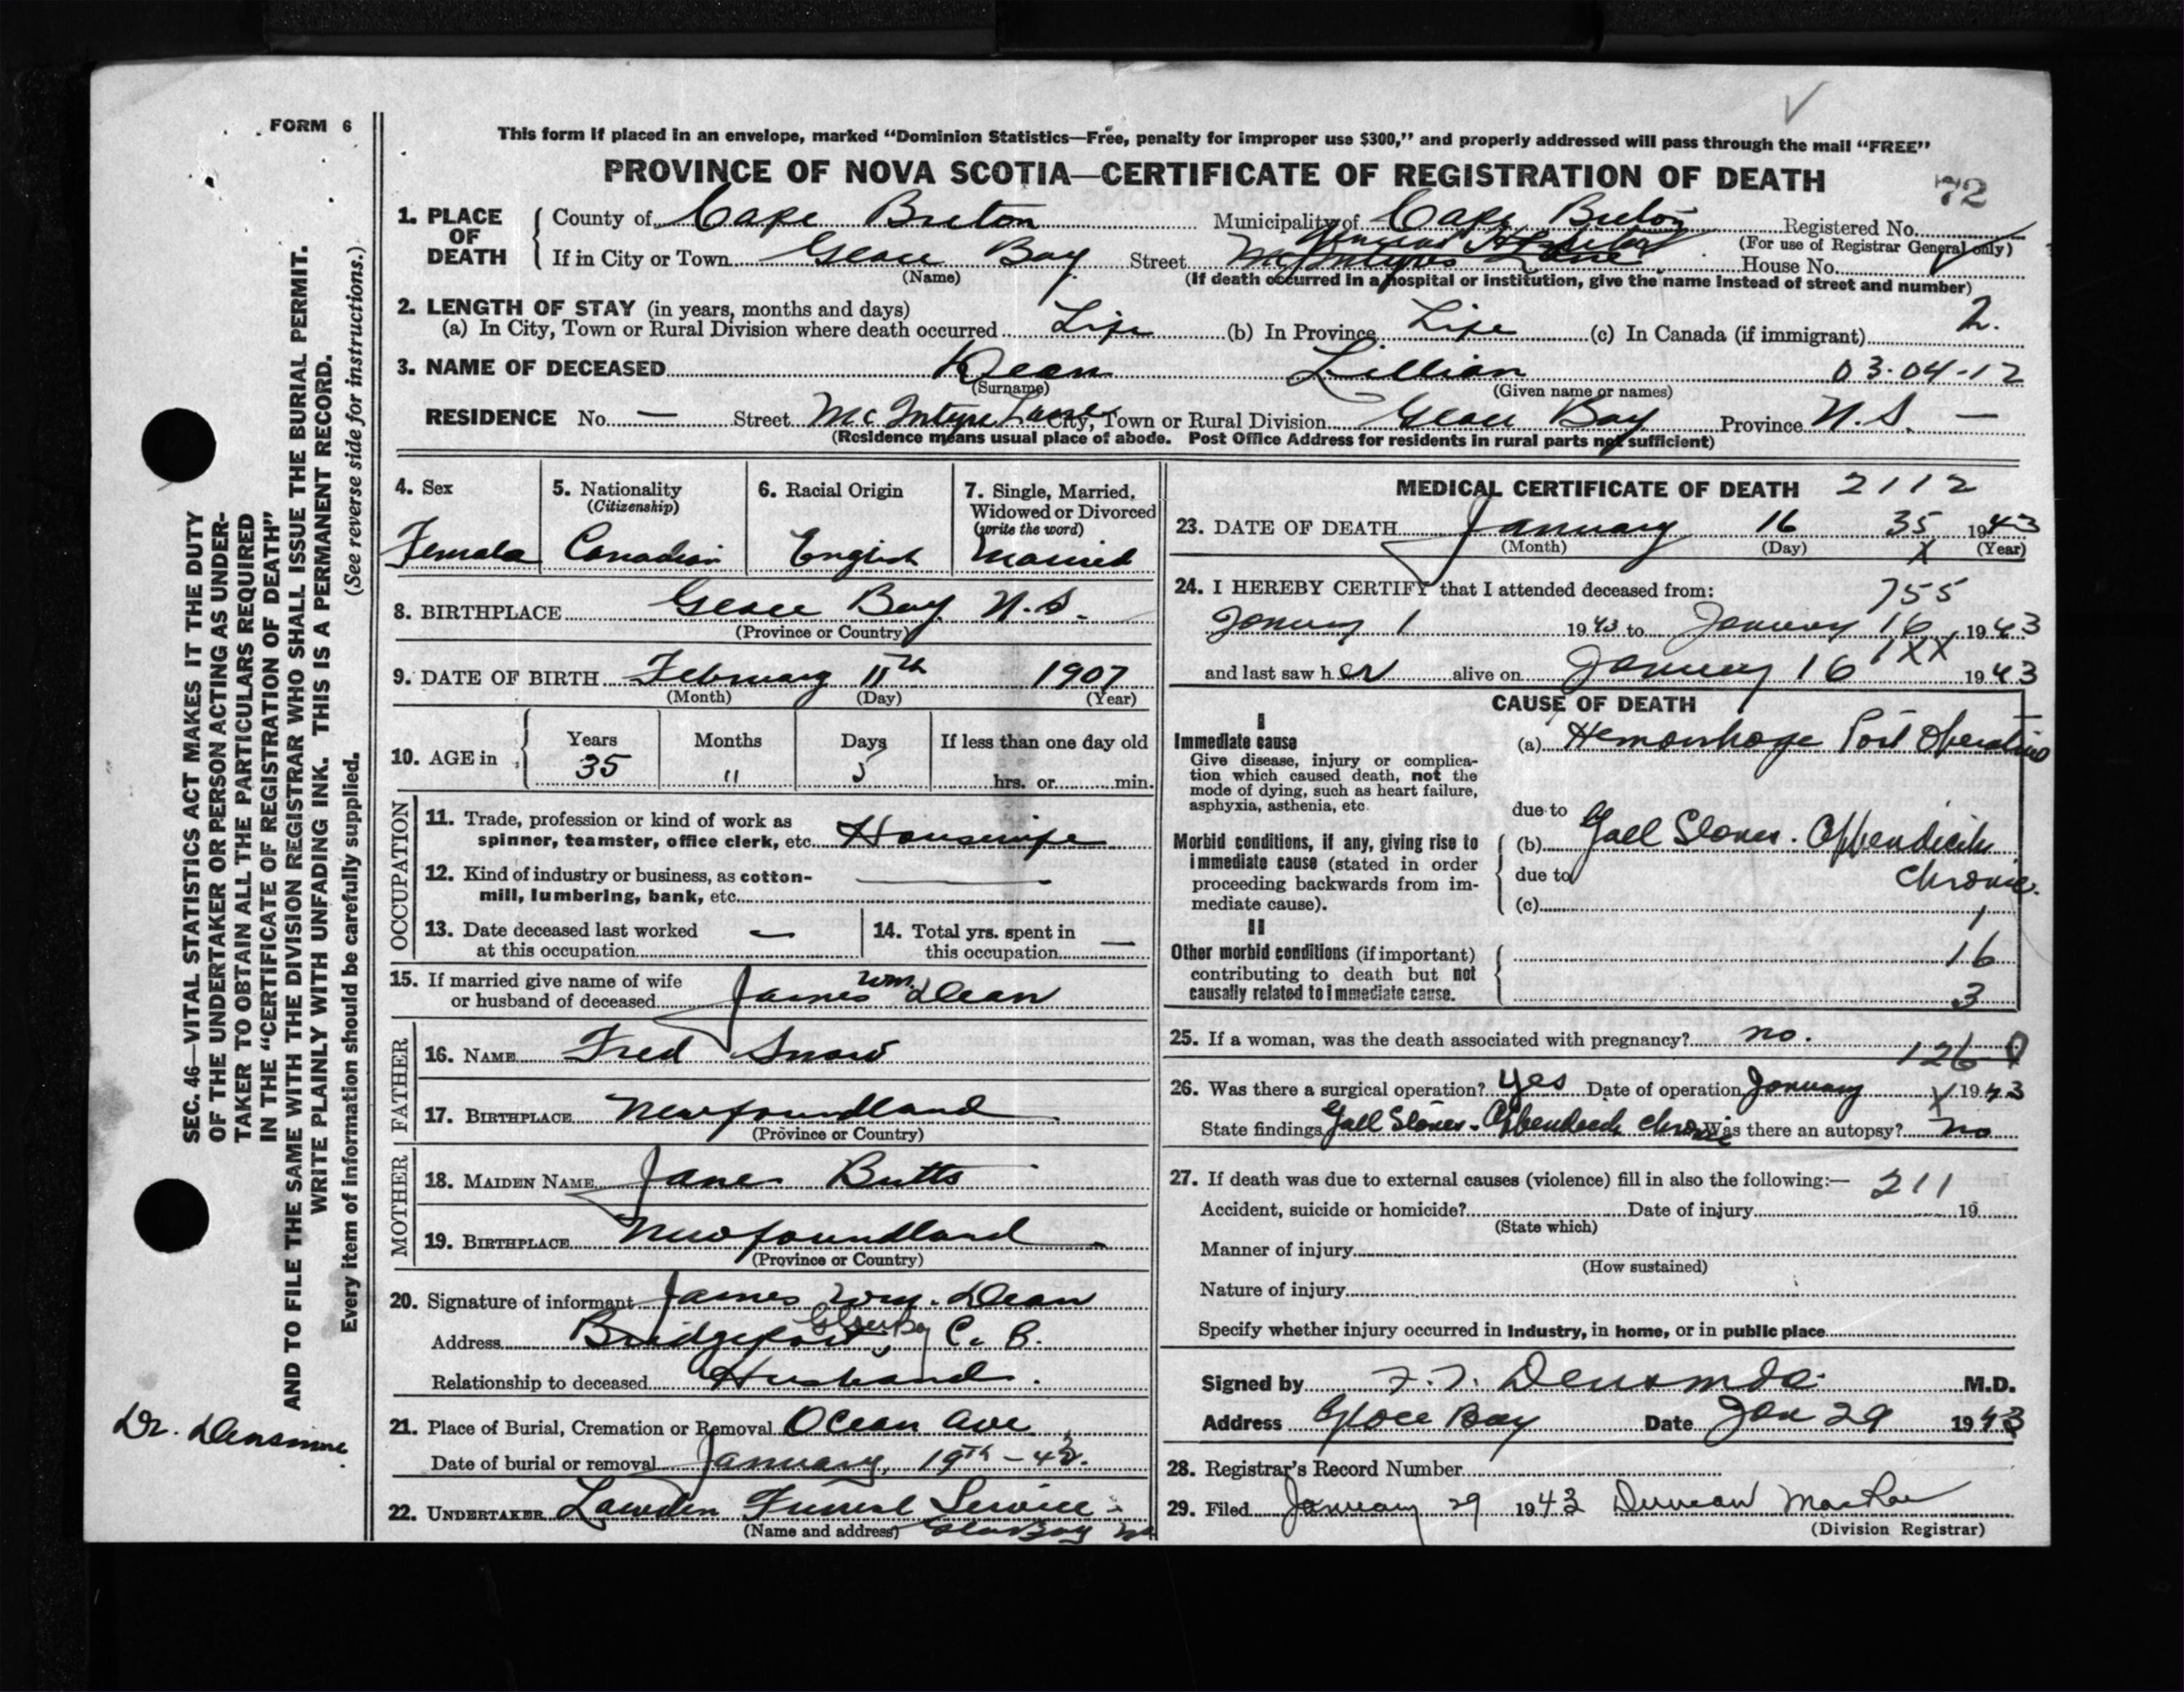 FORM 6
This form if placed in an envelope, marked “Dominion Statistics—Free, penalty for improper use $300,” and properly addressed will pass through the mail “FREE”
PROVINCE OF NOVA SCOTIA—CERTIFICATE OF REGISTRATION OF DEATH
72
1. PLACE OF DEATH
County of Cape Breton Municipality of Cape Breton Registered No.
(For use of Registrar General only)
General Hospital
If in City or Town Glace Bay Street McIntyres Lane House No.
(Name) (If death occurred in a hospital or institution, give the name instead of street and number)
2. LENGTH OF STAY (in years, months and days)
(a) In City, Town or Rural Division where death occurred Life (b) In Province Life (c) In Canada (if immigrant) 2.
3. NAME OF DECEASED Dean Lillian 03-04-12
(Surname) (Given name or names)
RESIDENCE No. — Street McIntyre Lane City, Town or Rural Division Glace Bay Province N.S. —
(Residence means usual place of abode. Post Office Address for residents in rural parts not sufficient)
4. Sex
Female
5. Nationality
(Citizenship)
Canadian
6. Racial Origin
English
7. Single, Married,
Widowed or Divorced
(write the word)
Married
8. BIRTHPLACE Glace Bay N.S.
(Province or Country)
9. DATE OF BIRTH February 11th 1907
(Month) (Day) (Year)
10. AGE in
Years Months Days If less than one day old
35 11 5 hrs. or min.
OCCUPATION
11. Trade, profession or kind of work as
spinner, teamster, office clerk, etc. Housewife
12. Kind of industry or business, as cotton-
mill, lumbering, bank, etc. —
13. Date deceased last worked
at this occupation —
14. Total yrs. spent in
this occupation —
15. If married give name of wife
or husband of deceased James Wm. Dean
FATHER
16. NAME Fred Snow
17. BIRTHPLACE Newfoundland
(Province or Country)
MOTHER
18. MAIDEN NAME Jane Butts
19. BIRTHPLACE Newfoundland
(Province or Country)
20. Signature of informant James Wm. Dean
Address Bridgeport, Glace Bay C. B.
Relationship to deceased Husband.
21. Place of Burial, Cremation or Removal Ocean Ave
Date of burial or removal January, 19th - 43.
22. UNDERTAKER Lawden Funeral Service -
(Name and address) Glace Bay
MEDICAL CERTIFICATE OF DEATH 2112
23. DATE OF DEATH January 16 35 1943
(Month) (Day) X (Year)
24. I HEREBY CERTIFY that I attended deceased from:
755
January 1 1943 to January 16 1943
1XX
and last saw her alive on January 16 1943
CAUSE OF DEATH
I
Immediate cause
Give disease, injury or complica-
tion which caused death, not the
mode of dying, such as heart failure,
asphyxia, asthenia, etc.
(a) Hemorrhage Post Operative
due to
Morbid conditions, if any, giving rise to
immediate cause (stated in order
proceeding backwards from im-
mediate cause).
(b) Gall Stones. Appendicitis
due to chronic.
(c)
1
II
Other morbid conditions (if important)
contributing to death but not
causally related to immediate cause.
16
3
25. If a woman, was the death associated with pregnancy? no.
126
26. Was there a surgical operation? yes Date of operation January 1943
State findings Gall Stones - Appendicitis chronic Was there an autopsy? no
27. If death was due to external causes (violence) fill in also the following:— 211
Accident, suicide or homicide? Date of injury 19
(State which)
Manner of injury
(How sustained)
Nature of injury
Specify whether injury occurred in industry, in home, or in public place
Signed by M.D.
Address Glace Bay Date Jan 29 1943
28. Registrar’s Record Number
29. Filed January 29 1943 Duncan MacRae
(Division Registrar)
SEC. 46—VITAL STATISTICS ACT MAKES IT THE DUTY
OF THE UNDERTAKER OR PERSON ACTING AS UNDER-
TAKER TO OBTAIN ALL THE PARTICULARS REQUIRED
IN THE “CERTIFICATE OF REGISTRATION OF DEATH”
AND TO FILE THE SAME WITH THE DIVISION REGISTRAR WHO SHALL ISSUE THE BURIAL PERMIT.
WRITE PLAINLY WITH UNFADING INK. THIS IS A PERMANENT RECORD.
Every item of information should be carefully supplied. (See reverse side for instructions.)
Dr. Densmore